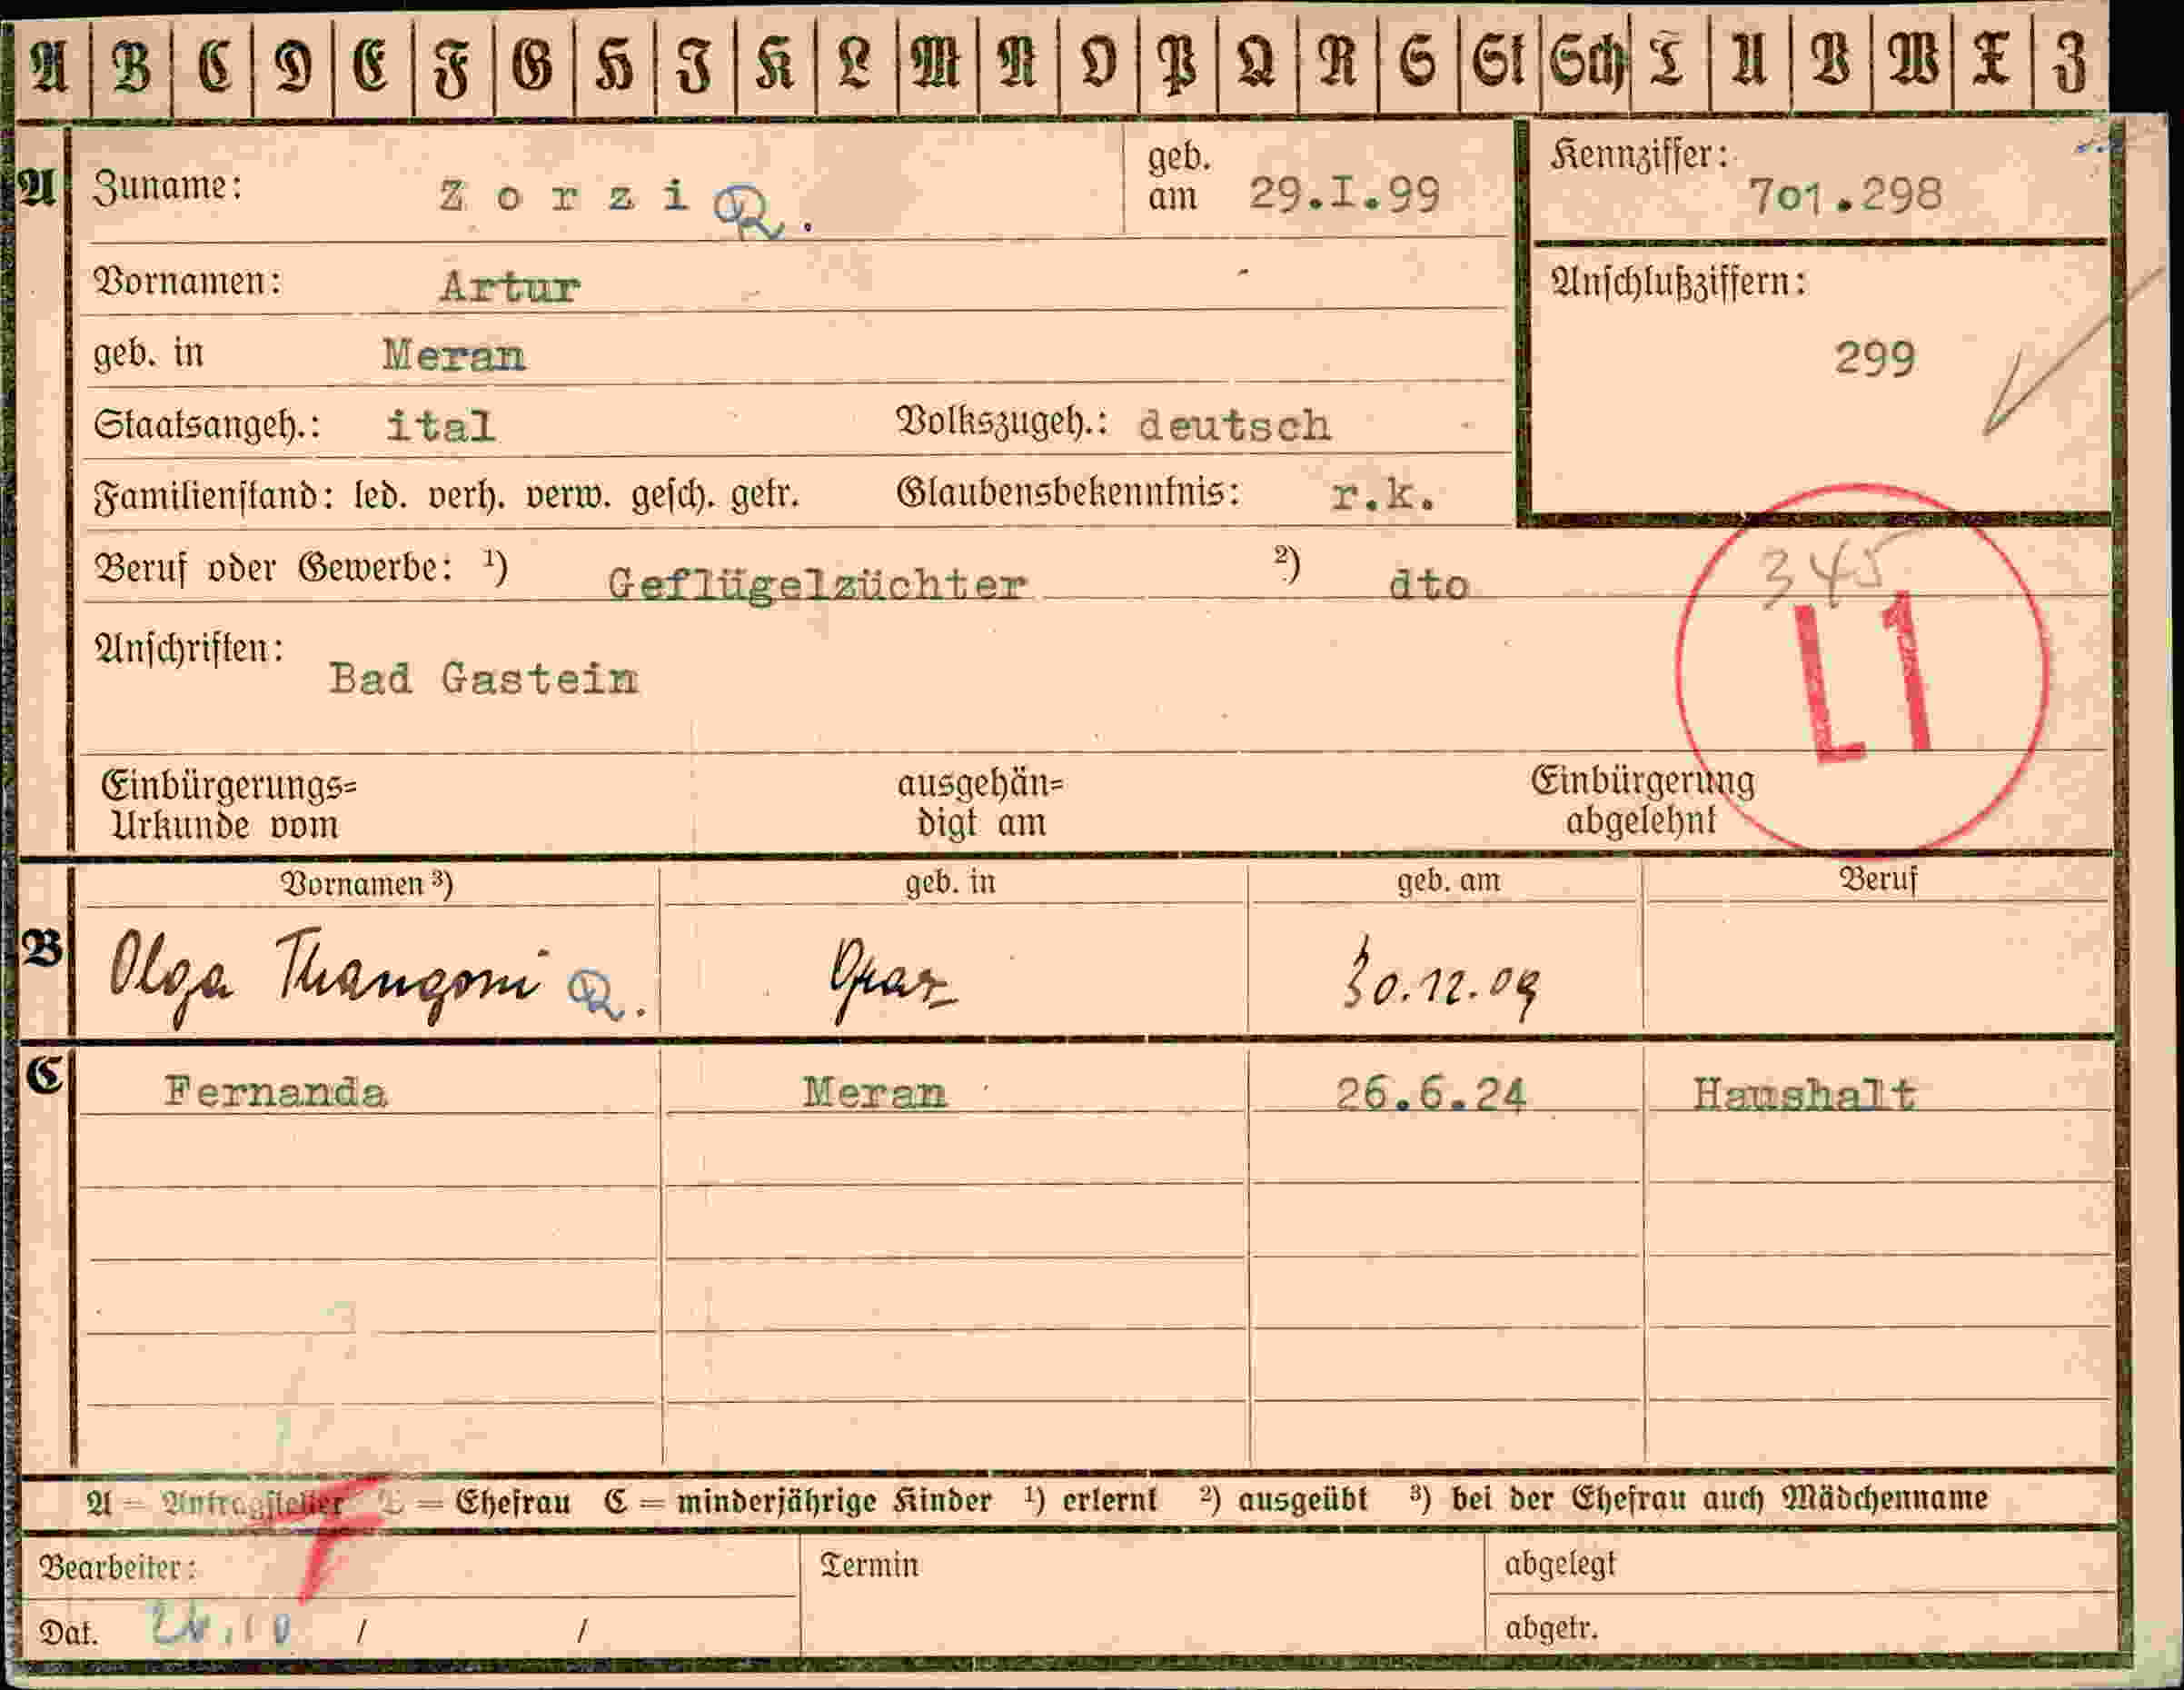 A B C D E F G H I K L M N O P Q R S St Sch T U V W X Z
A Zuname: Zorzi R. geb. am 29.I.99 Kennziffer: 701.298
Vornamen: Artur Anschlußziffern:
geb. in Meran 299
Staatsangeh.: ital Volkszugeh.: deutsch
Familienstand: led. verh. verw. gesch. getr. Glaubensbekenntnis: r.k.
Beruf oder Gewerbe: ¹) Geflügelzüchter ²) dto 345
Anschriften: Bad Gastein L1
Einbürgerungs= ausgehän= Einbürgerung
Urkunde vom digt am abgelehnt
Vornamen ³) geb. in geb. am Beruf
B Olga R. Graz 30.12.09
C Fernanda Meran 26.6.24 Haushalt
A = Antragsteller B = Ehefrau C = minderjährige Kinder ¹) erlernt ²) ausgeübt ³) bei der Ehefrau auch Mädchenname
Bearbeiter: Termin abgelegt
Dat. / / abgetr.